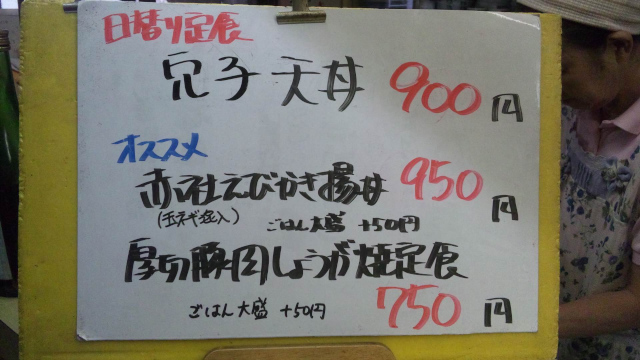 日替り定食
穴子天丼 900円
オススメ
赤社えびかき揚丼 950円
(玉ネギ入) ごはん大盛 +50円
厚切豚肉しょうが焼定食
ごはん大盛 +50円 750円